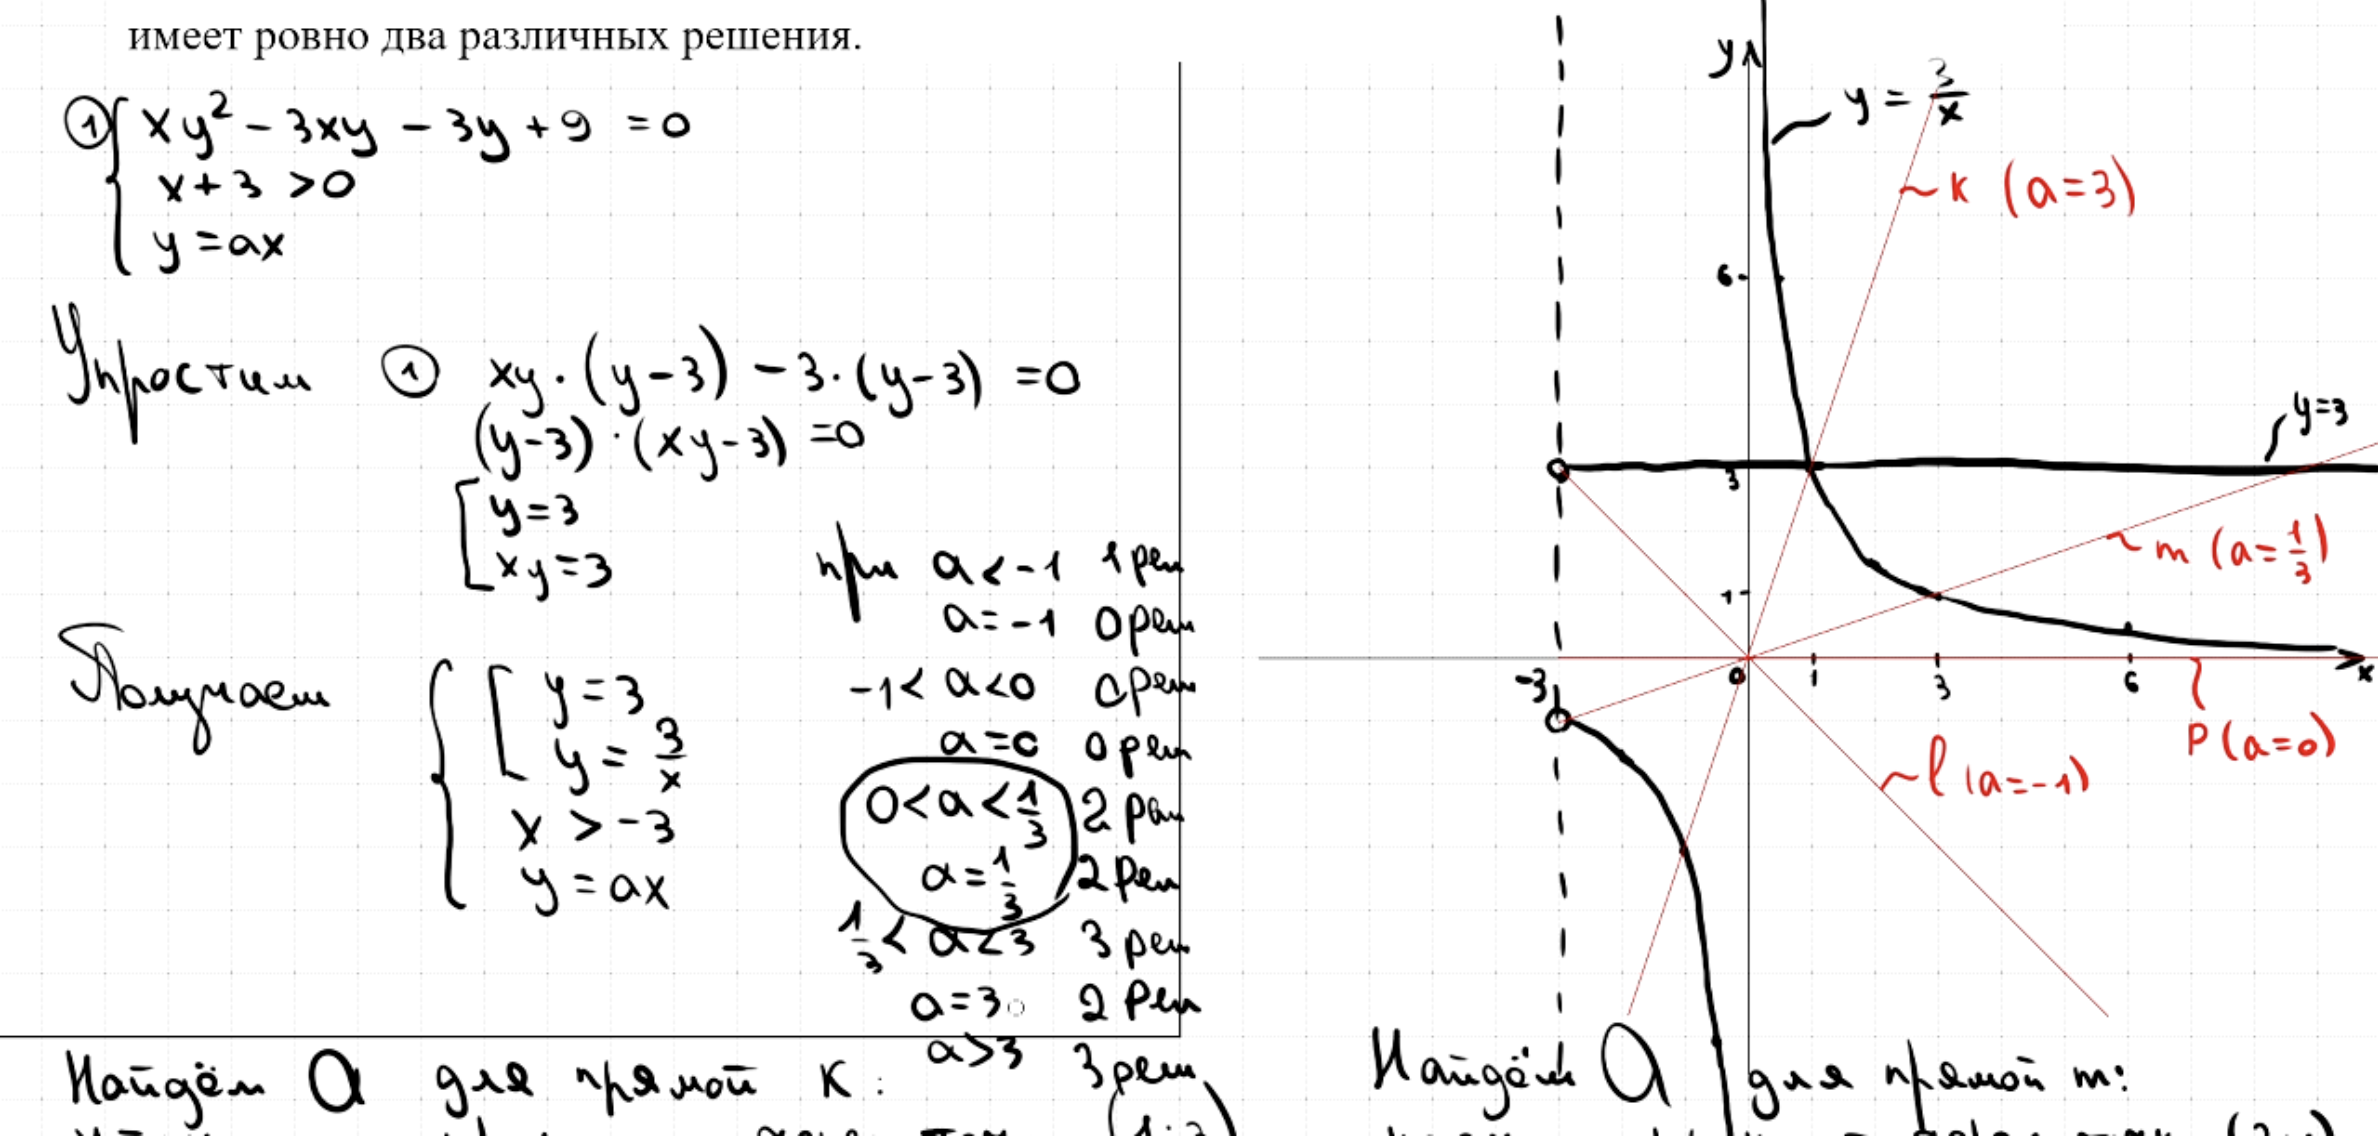 имеет ровно два различных решения.
① { xy² - 3xy - 3y + 9 = 0
x + 3 > 0
y = ax
Упростим ① xy · (y-3) - 3 · (y-3) = 0
(y-3) · (xy-3) = 0
[ y = 3
xy = 3
Получаем { [ y = 3
y = 3/x
x > -3
y = ax
при a < -1 1 реш
a = -1 0 реш
-1 < a < 0 0 реш
a = 0 0 реш
0 < a < 1/3 2 реш
a = 1/3 2 реш
1/3 < a < 3 3 реш
a = 3 2 реш
a > 3 3 реш
Найдём a для прямой k:
y
y = 3/x
k (a=3)
6
y=3
3
m (a=1/3)
1
-3 0 1 3 6 x
p (a=0)
l (a=-1)
Найдём a для прямой m: